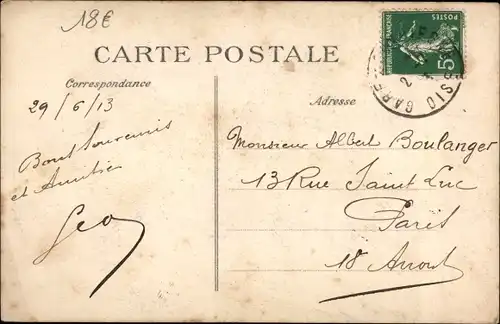 18€
CARTE POSTALE
Correspondance
Adresse
RÉPUBLIQUE FRANÇAISE
POSTES
5c
29/6/13
Bons Souvenirs
et Amitiés
Geo
Monsieur Albert Boulanger
13 Rue Saint Luc
Paris
18 Arrond